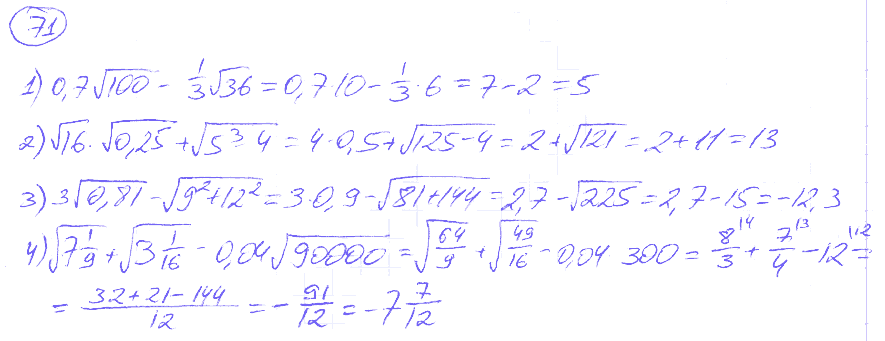 71
1) 0,7√100 - 1/3√36 = 0,7·10 - 1/3·6 = 7-2 = 5
2) √16·√0,25 + √(5³-4) = 4·0,5 + √(125-4) = 2+√121 = 2+11 = 13
3) 3√0,81 - √(9²+12²) = 3·0,9 - √(81+144) = 2,7 - √225 = 2,7-15 = -12,3
4) √(7 1/9) + √(3 1/16) - 0,04√90000 = √(64/9) + √(49/16) - 0,04 300 = 8/3 \4 + 7/4 \3 - 12 \12 =
= (32+21-144)/12 = - 91/12 = -7 7/12